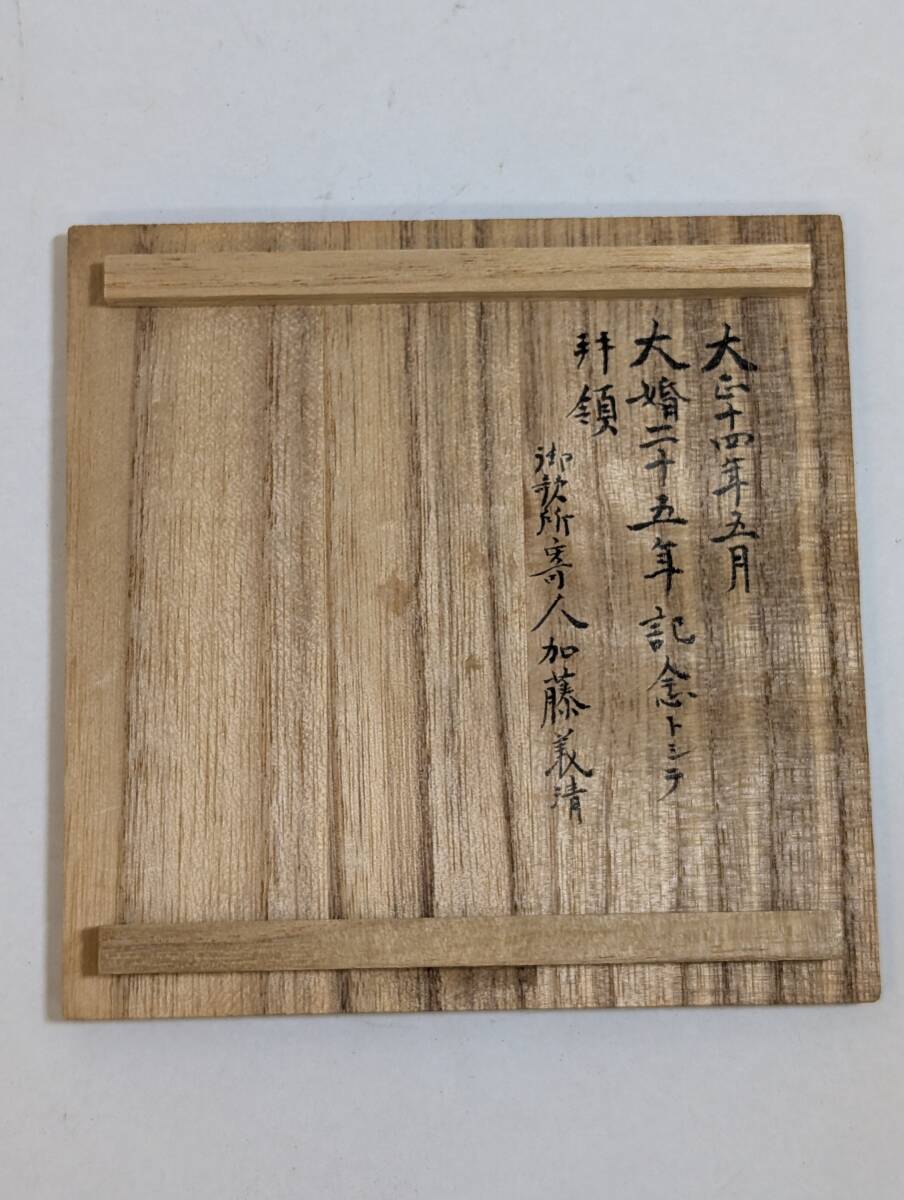 大正十四年五月
大婚二十五年記念トシテ
拝領
御歌所寄人加藤義清